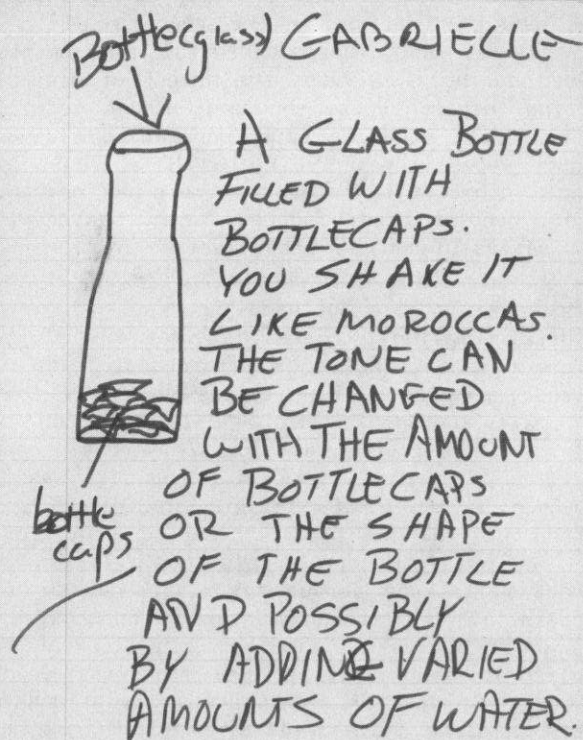 Bottle(glass) GABRIELLE
A GLASS BOTTLE
FILLED WITH
BOTTLECAPS.
YOU SHAKE IT
LIKE MOROCCAS.
THE TONE CAN
BE CHANGED
WITH THE AMOUNT
OF BOTTLECAPS
OR THE SHAPE
OF THE BOTTLE
AND POSSIBLY
BY ADDING VARIED
AMOUNTS OF WATER.
bottle
caps